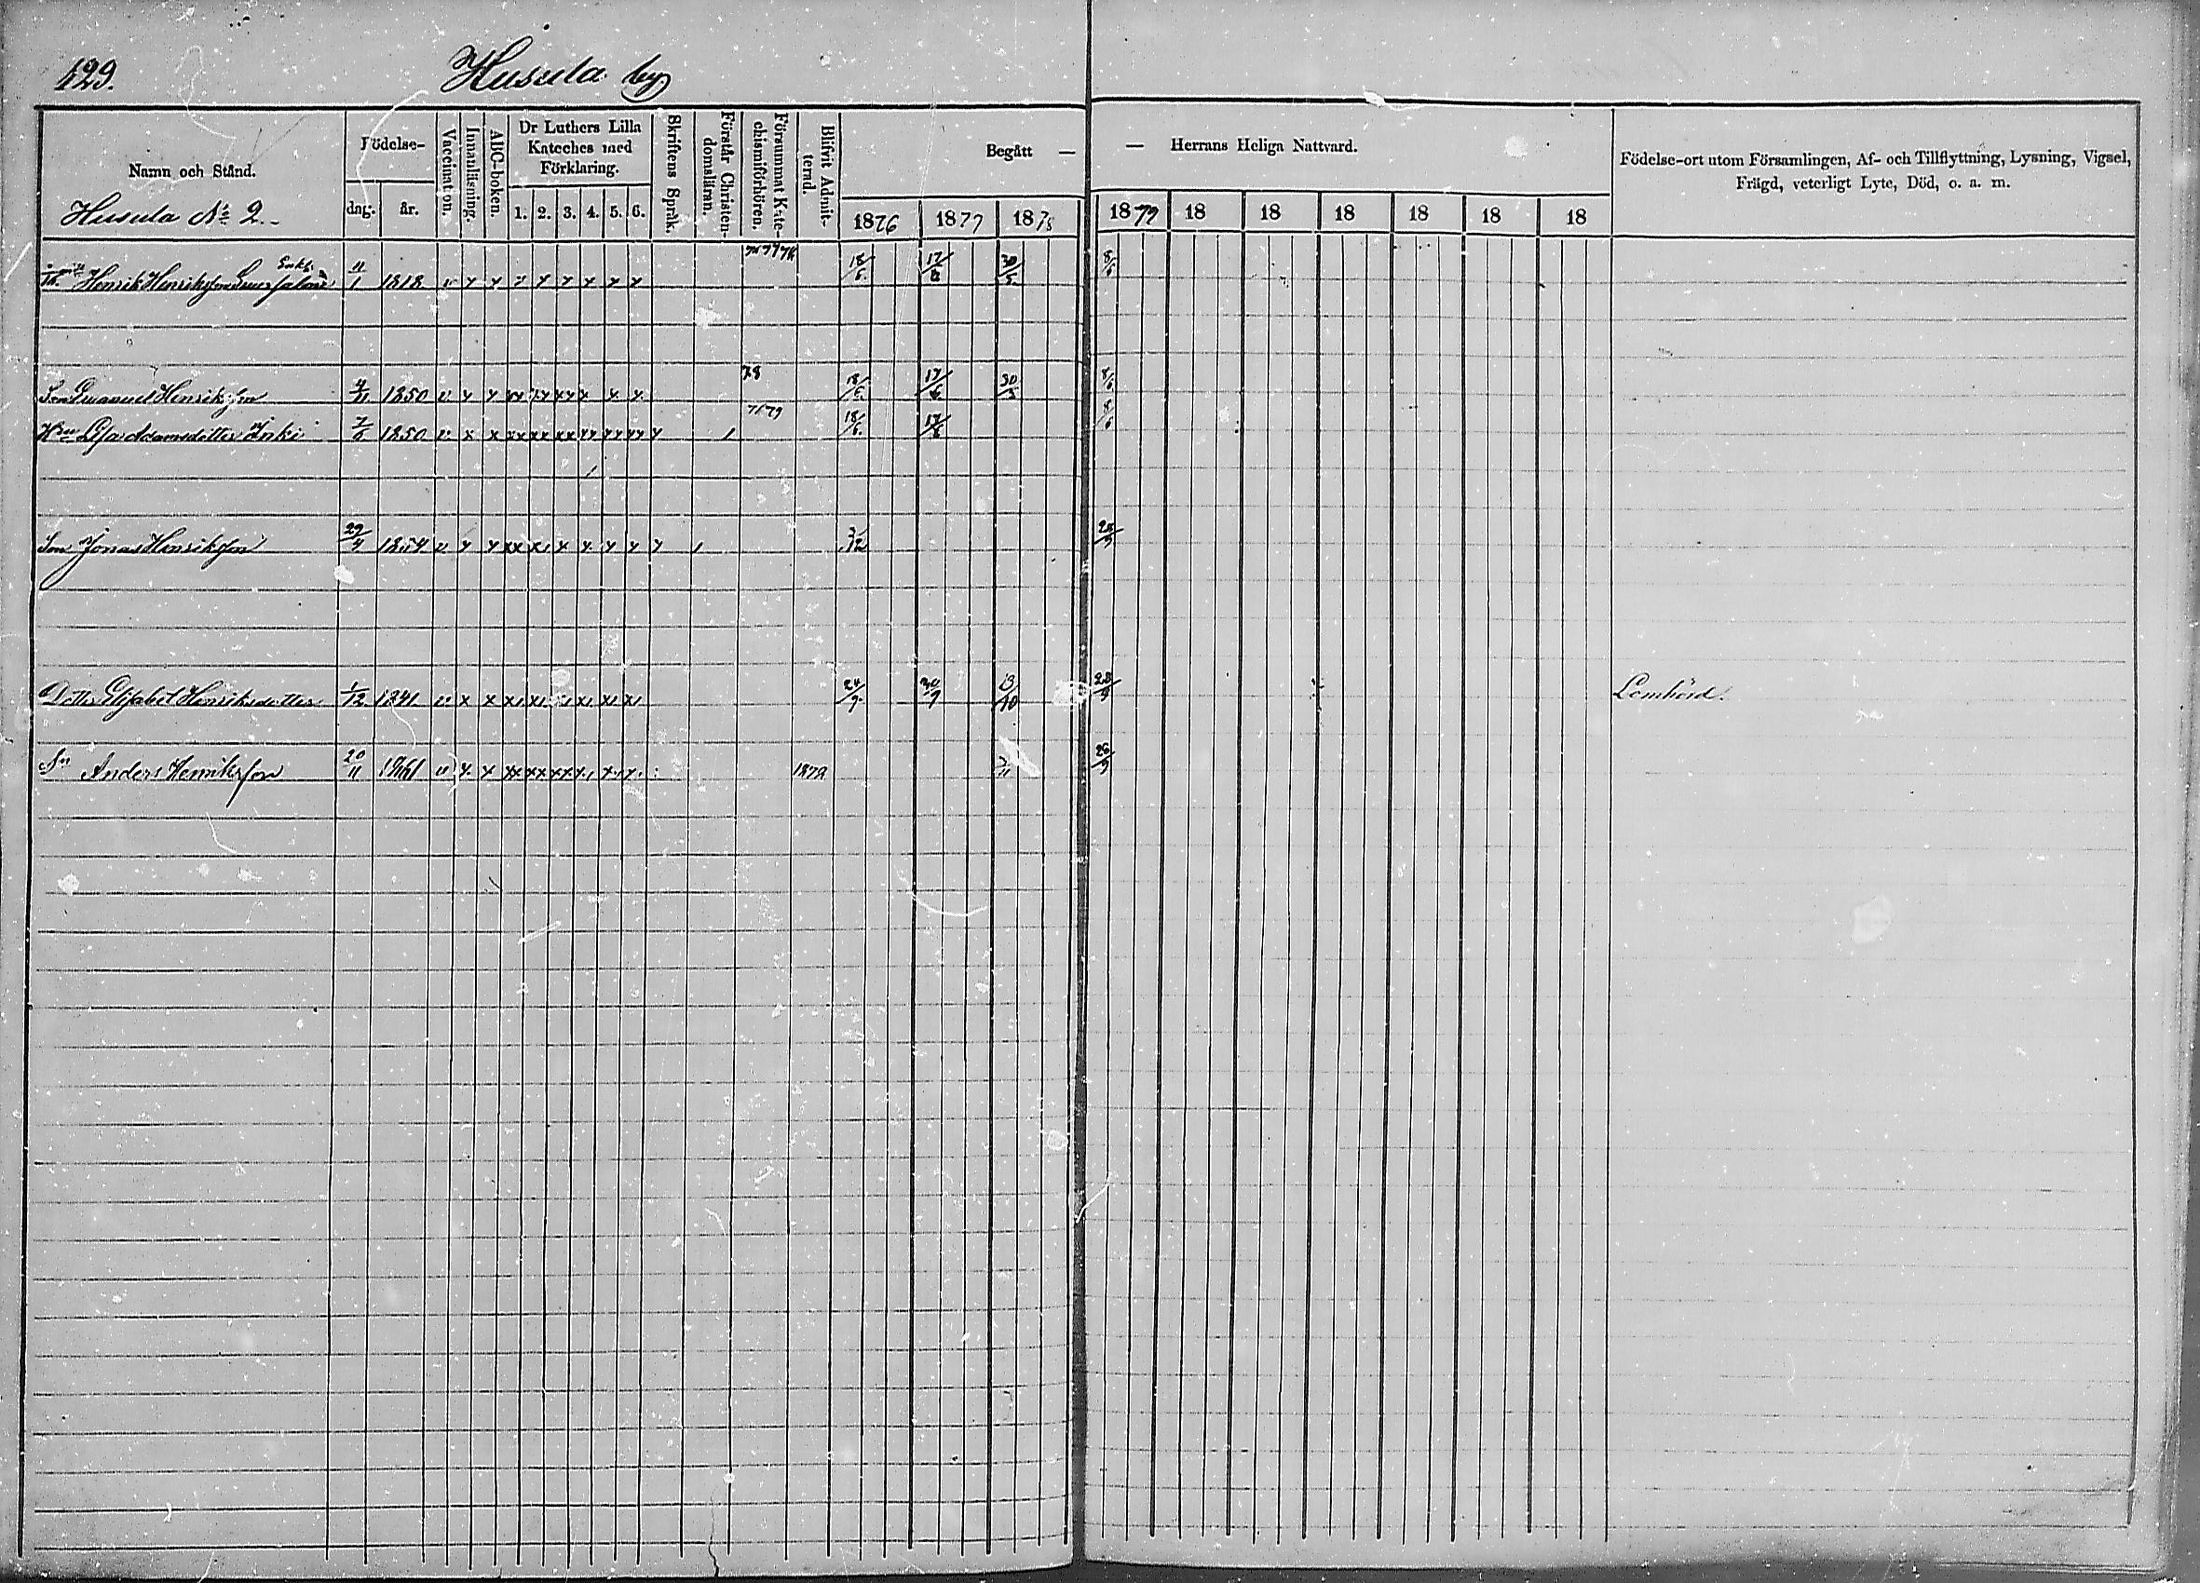 429.
Husula by
Namn och Stånd.
Husula No 2.
Födelse-
dag. år.
Vaccination.
Innanläsning.
ABC-boken.
Dr Luthers Lilla
Kateches med
Förklaring.
1. 2. 3. 4. 5. 6.
Skriftens Språk.
Förstår Christen-
domsläran.
Försummat Kate-
chismiförhören.
Blifvit Admit-
terad.
Begått —
1876 1877 1878
— Herrans Heliga Nattvard.
1879 18 18 18 18 18 18
Födelse-ort utom Församlingen, Af- och Tillflyttning, Lysning, Vigsel,
Frägd, veterligt Lyte, Död, o. a. m.
Enkl.
Henrik Henriksson 11/1 1818 v x x x x x x x x 18/6 17/6 30/5 8/6
Son Emanuel Henriksson 4/11 1850 v x x xx xx xx x x x 78 18/6 17/6 30/5 8/6
Hru Lisa Adamsdotter Inki 7/6 1850 v x x xx xx xx xx xx xx x 1 18/6 17/6 8/6
Son Jonas Henriksson 29/4 1854 v x x xx x x x x x x 1 3/12 28/9
Dotter Elisabet Henriksdotter 1/12 1841 v x x 24/9 30/9 13/10 28/9 Lomhörd.
Sn Anders Henriksson 20/11 1861 v x x xx xx xx 1878 3/11 28/9